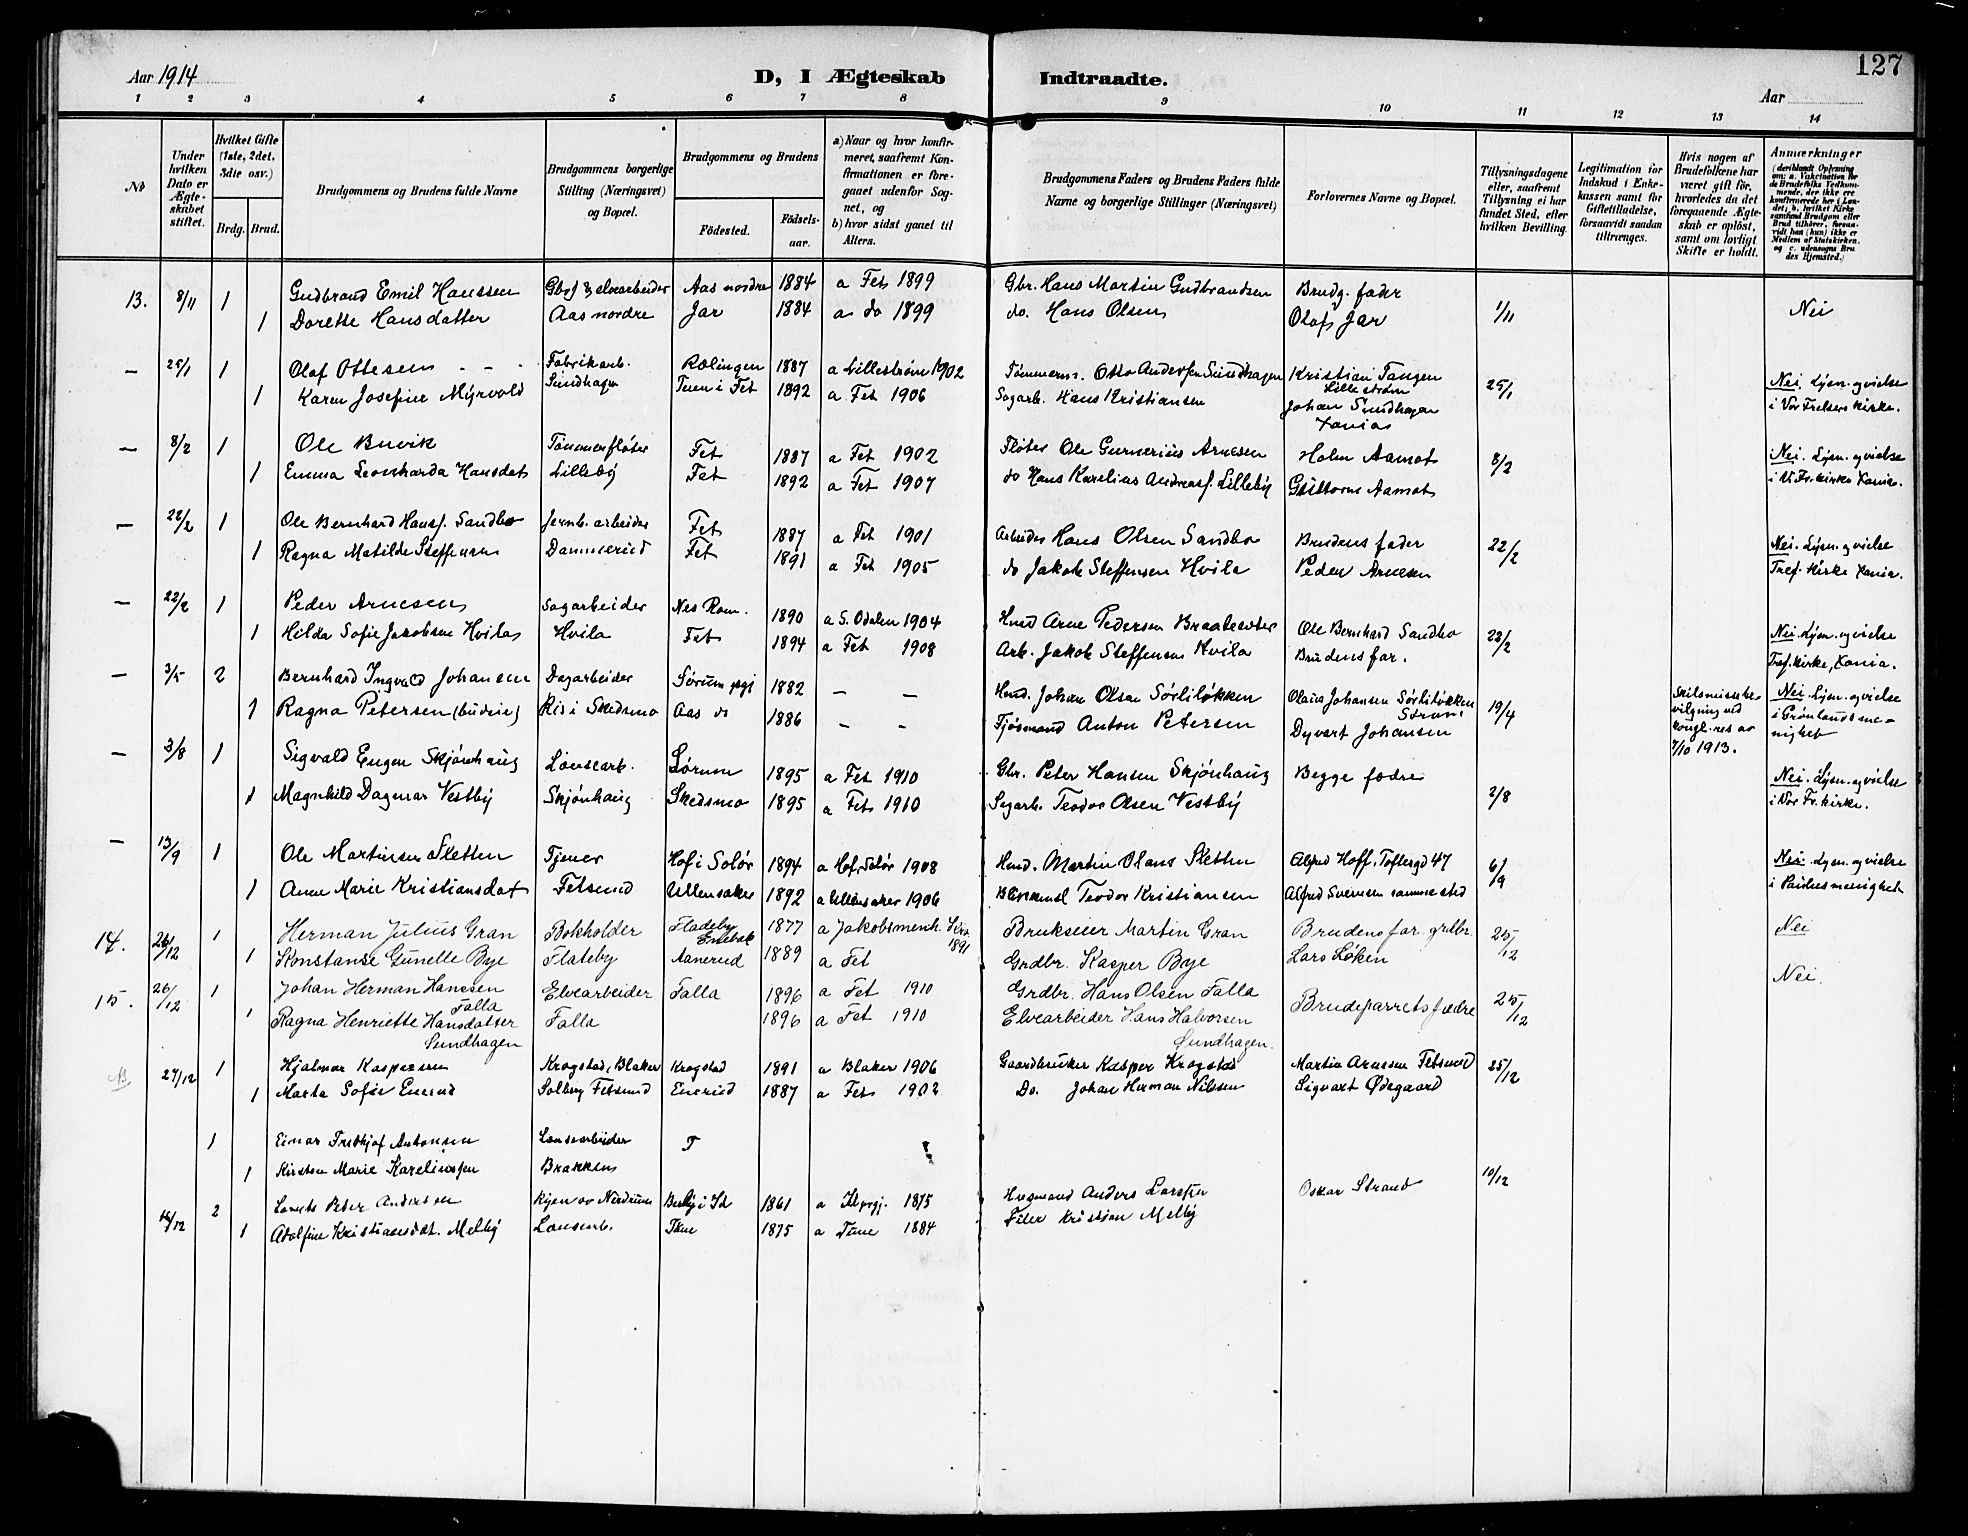 127
Aar 1914
D, I Ægteskab Indtraadte.
Aar
1 2 3 4 5 6 7 8 9 10 11 12 13 14
No
Under hvilken Dato er Ægteskabet stiftet.
Hvilket Gifte (1ste, 2det, 3die osv.)
Brdg. Brud.
Brudgommens og Brudens fulde Navne
Brudgommens borgerlige Stilling (Næringsvei) og Bopæl.
Brudgommens og Brudens
Födested.
Födsels-aar.
a) Naar og hvor konfirmeret, saafremt Konfirmationen er foregaaet udenfor Sognet, og
b) hvor sidst gaaet til Alters.
Brudgommens Faders og Brudens Faders fulde Navne og borgerlige Stillinger (Næringsvei)
Forlovernes Navne og Bopæl.
Tillysningsdagene eller, saafremt Tillysning ei har fundet Sted, efter hvilken Bevilling.
Legitimation for Indskud i Enkekassen samt for Giftetilladelse, forsaavidt saadan tiltrænges.
Hvis nogen af Brudefolkene har været gift för, hvorledes da det foregaaende Ægteskab er oplöst, samt om lovligt Skifte er holdt.
Anmærkninger
13. 8/11 1 Gudbrand Emil Hanssen Gbrs. & elvearbeider Aas nordre 1884 a Fet 1899 Gbr. Hans Martin Gudbrandsen Brudg. fader 1/11 Nei
1 Dorette Hansdatter Aas nordre Jar 1884 a do 1899 do. Hans Olsen Olaf Jar
— 25/1 1 Olaf Ottesen Fabrikarb. Rælingen 1887 a Lillestrøm 1902 Tømmerm. Otto Andersen Sundhagen Kristian Tangen Lillestrøm 25/1 Nei. Lysn. og vielse
1 Karen Josefine Myrvold Sundhagen Tuen i Fet 1892 a Fet 1906 Sagarb. Hans Kristiansen Johan Sundhagen Xania i Vor Frelsers kirke.
— 8/2 1 Ole Buvik Tømmerfløter Fet 1887 a Fet 1902 Fløter Ole Gunnerius Arnesen Holm Aamot 8/2 Nei. Lysn. og vielse
1 Emma Leonharda Hansdat. Lilleby Fet 1892 a Fet 1907 do Hans Karelius Andreass. Lilleby Guttorm Aamot i V. Fr. kirke Xania.
— 22/2 1 Ole Bernhard Hanss. Sandbo Jernb. arbeider Fet 1887 a Fet 1901 Arbeider Hans Olsen Sandbo Brudens fader 22/2 Nei. Lysn. og vielse
1 Ragna Matilde Steffensen Dammerud Fet 1891 a Fet 1905 do Jakob Steffensen Hvila Peder Arnesen Tref. kirke Xania.
— 22/2 1 Peder Arnesen Sagarbeider Nes Rom. 1890 a S. Odalen 1904 Hmd Arne Pedersen Braateeter Ole Bernhard Sandbo 22/2 Nei. Lysn. og vielse
1 Hilda Sofie Jakobsen Hvila Hvila Fet 1894 a Fet 1908 Arb. Jakob Steffensen Hvila Brudens far. Tref. kirke, Xania.
— 3/5 2 Bernhard Ingvald Johansen Dagarbeider Sørum pgj 1882 — — Hmd. Johan Olsen Sørliløkken Olaus Johansen Sørliløkken 19/4 Skilsmissebevilgning ved kongl. res av 7/10 1913. Nei. Lysn. og vielse
1 Ragna Petersen (budeie) Ris i Skedsmo Aas do 1886 — — Fjøsmand Anton Petersen Dyvert Johansen i Grønlands menighet
— 3/8 1 Sigvald Eugen Skjønhaug Lensearb. Sørum 1895 a Fet 1910 Gbr. Peter Hansen Skjønhaug Begge fædre 2/8 Nei. Lysn. og vielse
1 Magnhild Dagmar Vestby Skjønhaug Skedsmo 1895 a Fet 1910 Sagarb. Teodor Olsen Vestby i Vor Fr. kirke.
— 13/9 1 Ole Martinsen Sletten Tjener Hof i Solør 1894 a Hof, Solør 1908 Hmd. Martin Olaus Sletten Alfred Hoff, Toftesgd 47 6/9 Nei. Lysn. og vielse
1 Anne Marie Kristiansdat Fetsund Ullensaker 1892 a Ullensaker 1906 Teodor Kristiansen Alfred Svensen sammested i Paulus menighet
14. 26/12 1 Herman Julius Gran Bokholder Fladeby Enebak 1877 a Jakobsmenh. Kra 1891 Brukseier Martin Gran Brudens far grdbr. 25/12 Nei
1 Konstanse Gunelle Bye Flateby Aanerud 1889 a Fet Grdbr. Kasper Bye Lars Løken
15. 26/12 1 Johan Herman Hanssen Falla Elvearbeider Falla 1896 a Fet 1910 Grdbr. Hans Olsen Falla Brudeparrets fædre 25/12 Nei.
1 Ragna Henriette Hansdatter Sundhagen Falla 1896 a Fet 1910 Elvearbeider Hans Halvorsen Sundhagen.
27/12 1 Hjalmar Kaspersen Krogstad, Blaker Krogstad 1891 a Blaker 1906 Gaardbruker Kasper Krogstad Martin Arnesen Fetsund 25/12
1 Marta Sofie Enerud Solberg Fetsund Enerud 1887 a Fet 1902 Do. Johan Herman Nilsen Sigvart Ødegaard
1 Einar Fridtjof Antonsen Lensearbeider F
1 Kirsten Marie Karelinssen Brakken
16/12 2 Peter Andersen Nerdrum 1861 a 1875 Husmand Anders Larssen Oskar Strand 10/12
1 Adolfine Kristiansdat. Melby Lensearb. Tune 1875 a Tune 1884 Kristian Melby